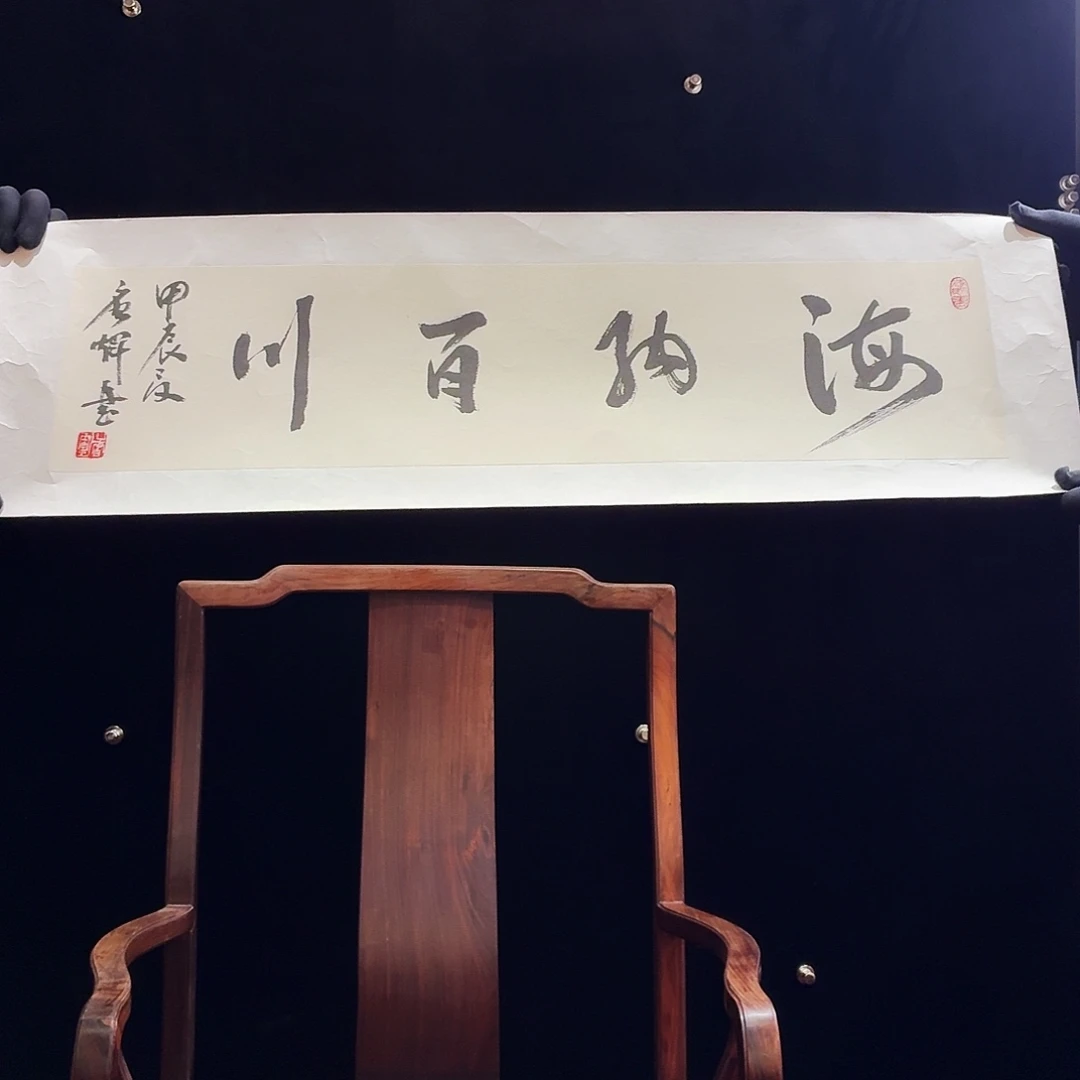 海纳百川
甲辰夏
唐辉书